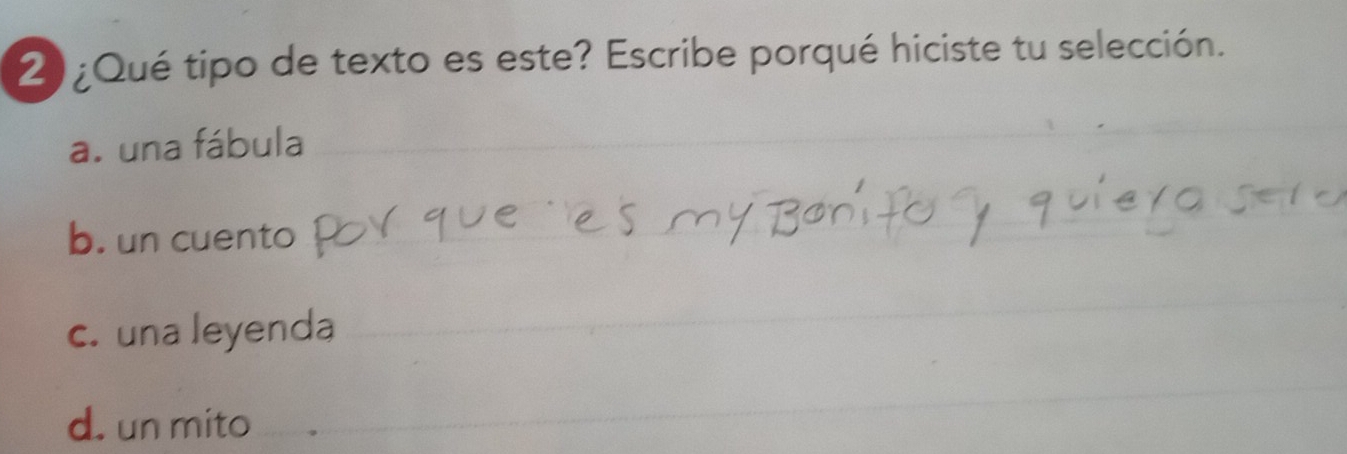 2 ¿Qué tipo de texto es este? Escribe porqué hiciste tu selección.
a. una fábula
b. un cuento por que es my Bonito y quiero
c. una leyenda
d. un mito